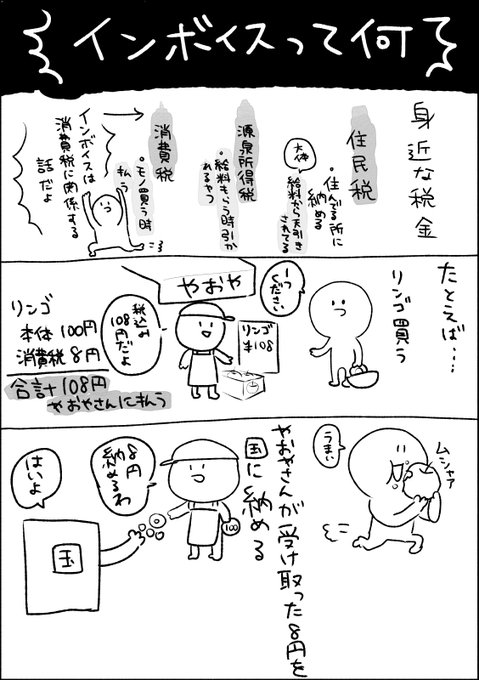 インボイスって何
身近な税金
住民税
・住んでる所に
納める
大体
給料から天引き
されてる
源泉所得税
・給料もらう時引か
れるやつ
消費税
・モノ買う時
払う
インボイスは
消費税に関係する
話だよ
たとえば…
リンゴ買う
一つ
ください
やおや
リンゴ
¥108
税込み
108円だよ
リンゴ
本体 100円
消費税 8円
合計 108円
やおやさんに払う
ムシャア
うまい
やおやさんが受け取った8円を
国に納める
8円
納めるわ
100
はいよ
国